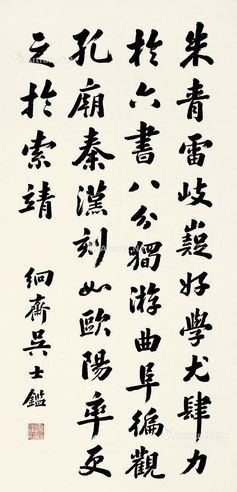 朱青雷岐嶷好學尤肆力
於六書八分獨游曲阜徧觀
孔廟秦漢刻如歐陽率更
之於索靖
絅齋吳士鑑